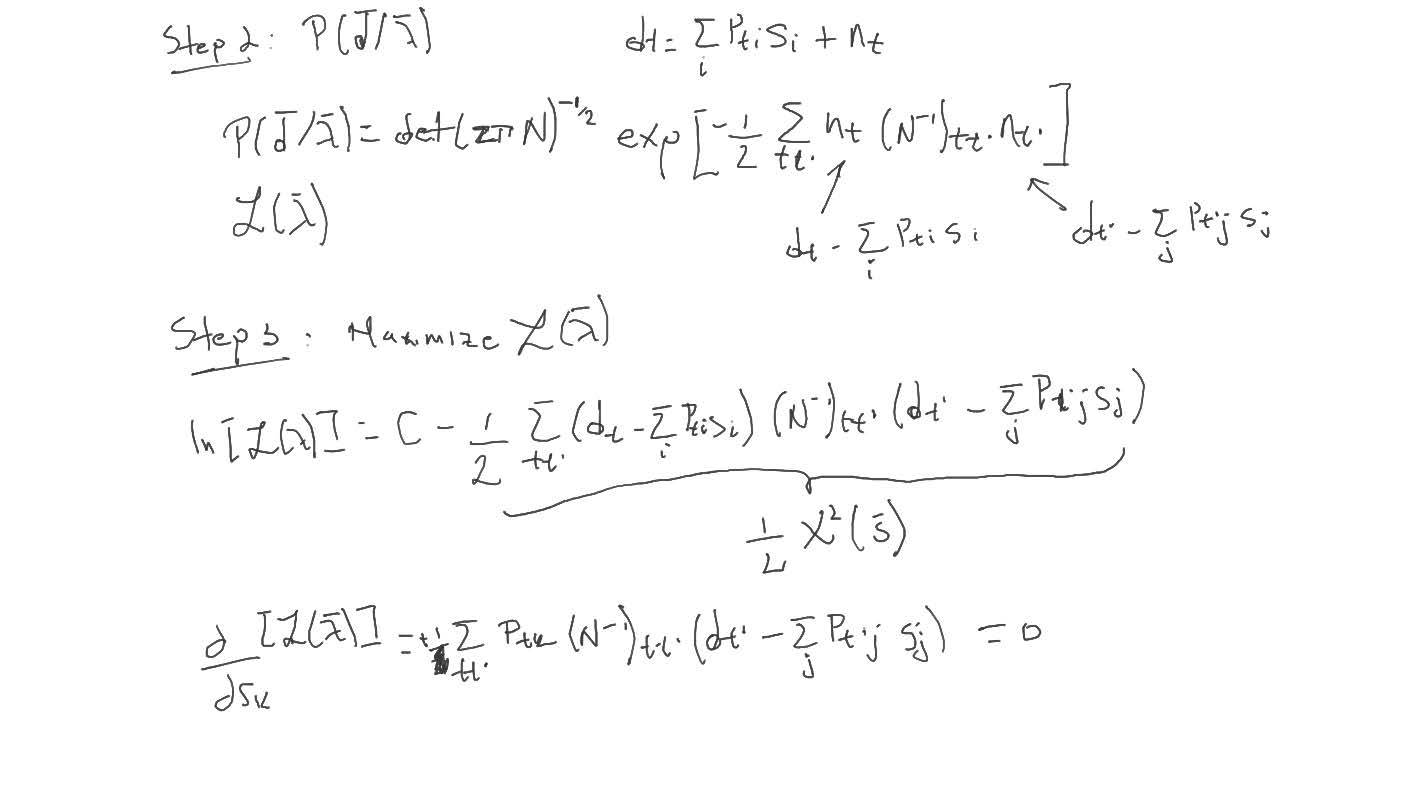 Step 2: P(d̄/λ̄)   dt = Σ_i Pti Si + nt
P(d̄/λ̄) = det(2πN)^{-1/2} exp[-1/2 Σ_{tt'} nt (N^{-1})_{tt'} nt']
ℒ(λ̄)
dt - Σ_i Pti Si   dt' - Σ_j Pt'j Sj
Step 3: Maximize ℒ(λ̄)
ln[ℒ(λ̄)] = C - 1/2 Σ_{tt'} (dt - Σ_i Pti Si) (N^{-1})_{tt'} (dt' - Σ_j Pt'j Sj)
1/2 χ²(s̄)
∂/∂Sk [ℒ(λ̄)] = +1 Σ_{tt'} Ptk (N^{-1})_{tt'} (dt' - Σ_j Pt'j Sj) = 0